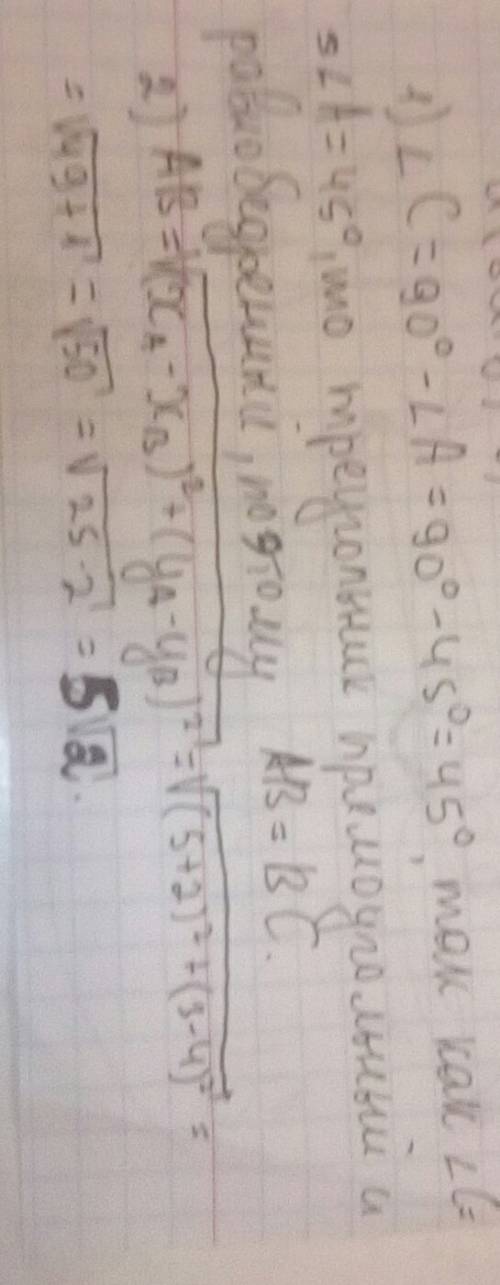 1) ∠C = 90° - ∠A = 90° - 45° = 45°, так как ∠C =
= ∠A = 45°, то треугольник прямоугольный и
равнобедренный, поэтому AB = BC.
2) AB = √(x_A - x_B)² + (y_A - y_B)² = √(5+2)² + (3-4)² =
= √49+1 = √50 = √25·2 = 5√2.